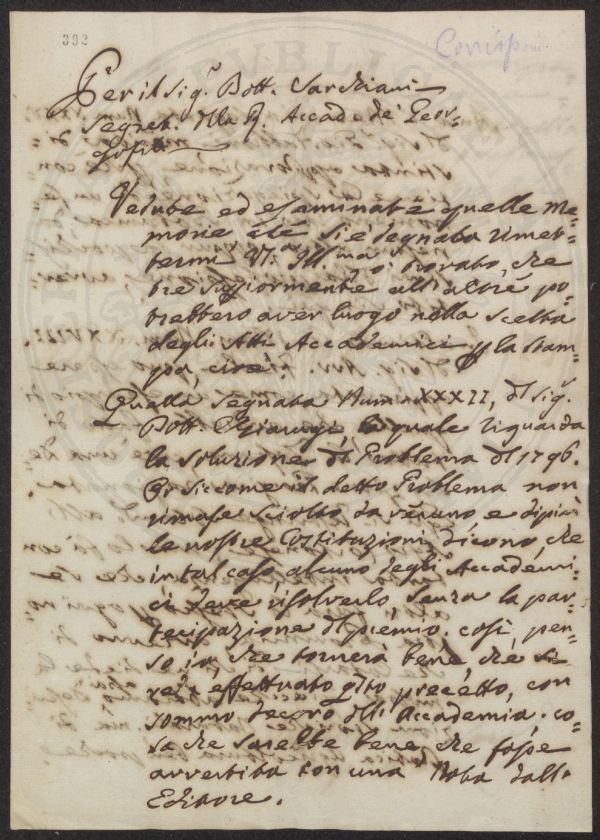 392
Per il Sig.r Dott. Sarchiani
Segret. della R. Accad. de' Geor-
gofili
Vedute ed esaminate quelle Me-
morie che si è degnata rimet-
termi V.S. Ill.ma ò trovato, che
tre superiormente all'altre po-
trebbero aver luogo nella scelta
degli Atti Accademici p la stam-
pa, cioè:
Quella segnata Num. XXXII, del Sig.r
Dott. la quale riguarda
la soluzione del Problema del 1796.
Or siccome il detto Problema non
rimase sciolto da veruno e di più
le nostre Costituzioni dicono, che
in tal caso, alcuno degli Accademi-
ci deve risolverlo, senza la par-
tecipazione del premio. così, pen-
so io, che tornerà bene, che si
veda effettuato qsto precetto, con
sommo decoro dell'Accademia. co-
sa che sarebbe bene, che fosse
avvertita con una Nota dall'
Editore.